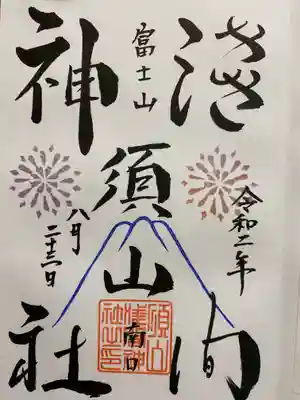 浅間
令和二年
富士山
須山
南口
須山
淺間神
社之印
八月
二十三日
神社